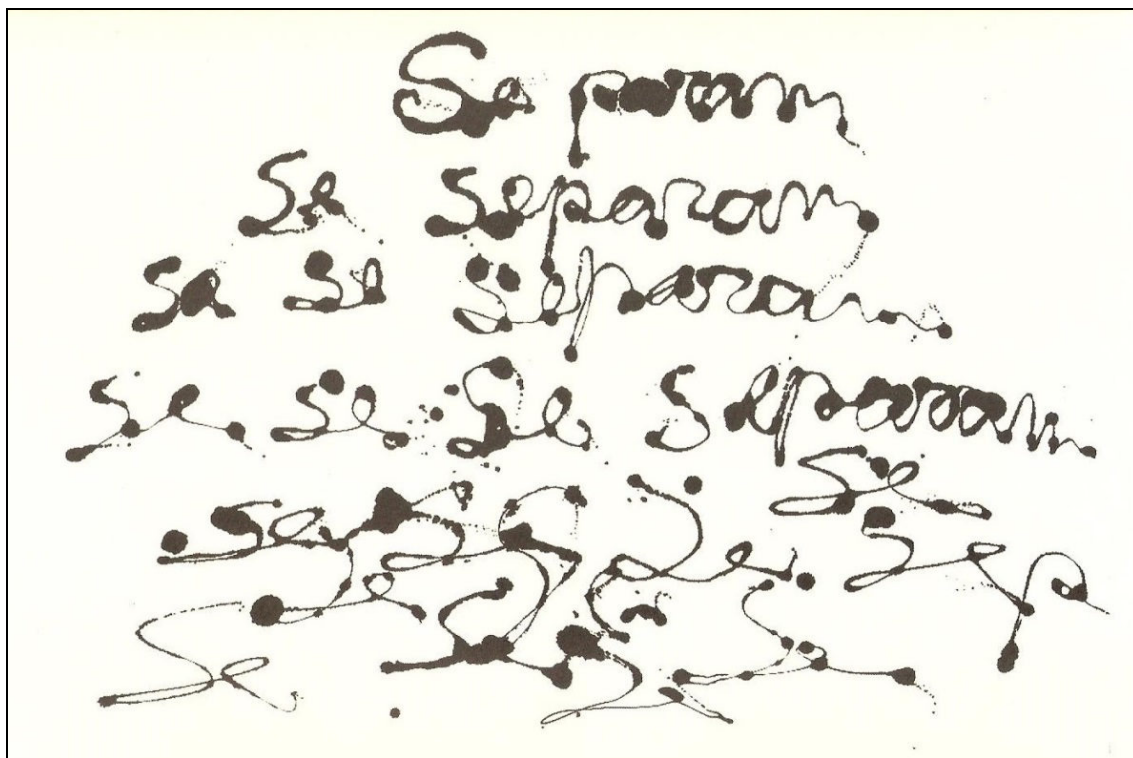 Se param
Se Separam
Se Se Separam
Se Se Se Separam
Se
Se Se Se Sep
Se